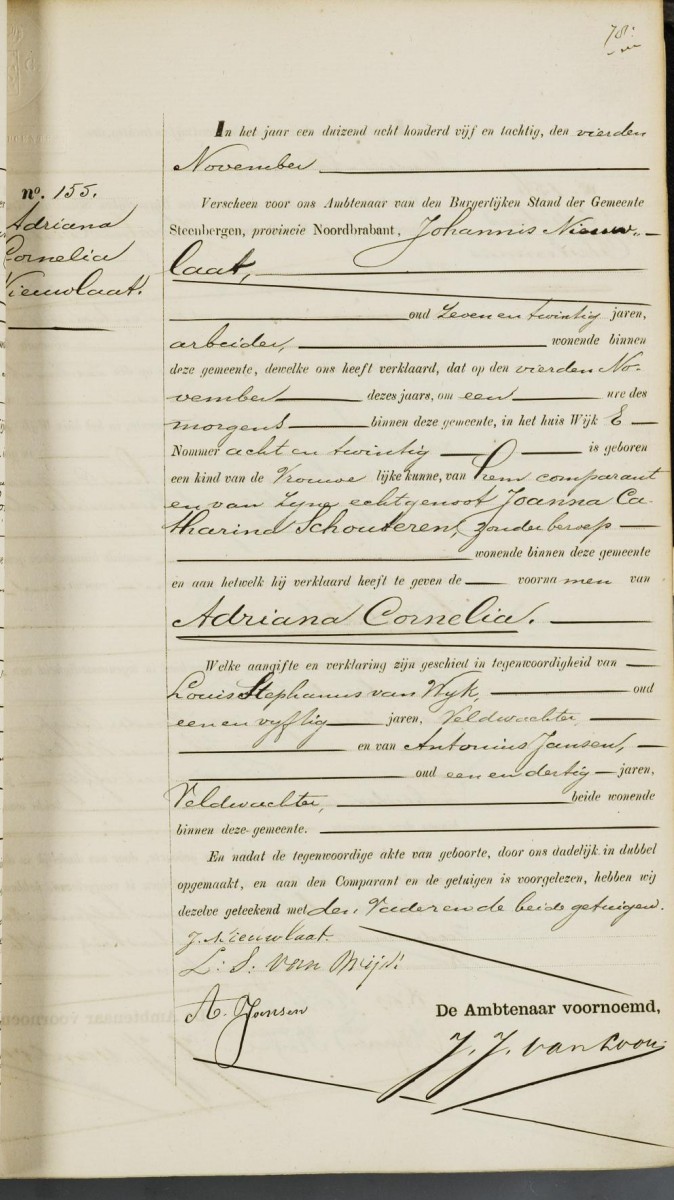 78.
In het jaar een duizend acht honderd vijf en tachtig, den vierden
November
no. 155.
Adriana
Cornelia
Nieuwlaat.
Verscheen voor ons Ambtenaar van den Burgerlijken Stand der Gemeente
Steenbergen, provincie Noordbrabant, Johannis Nieuw-
laat,
oud zeven en twintig jaren,
arbeider, wonende binnen
deze gemeente, dewelke ons heeft verklaard, dat op den vierden No-
vember dezes jaars, om een ure des
morgens binnen deze gemeente, in het huis Wijk E
Nommer acht en twintig is geboren
een kind van de Vrouwe lijke kunne, van hem comparant
en van zyne echtgenoot Joanna Ca-
tharina Schouteren, zonder beroep
wonende binnen deze gemeente
en aan hetwelk hij verklaard heeft te geven de voornamen van
Adriana Cornelia.
Welke aangifte en verklaring zijn geschied in tegenwoordigheid van
Louis Stephanus van Wyk oud
een en vyftig jaren, Veldwachter
en van Antonius Jansen,
oud een en dertig jaren,
Veldwachter, beide wonende
binnen deze gemeente.
En nadat de tegenwoordige akte van geboorte, door ons dadelijk in dubbel
opgemaakt, en aan den Comparant en de getuigen is voorgelezen, hebben wij
dezelve geteekend met den Vader en de beide getuigen.
J. Nieuwlaat.
L: S: van Wijk
A. Jansen
De Ambtenaar voornoemd,
J. J. van Loon